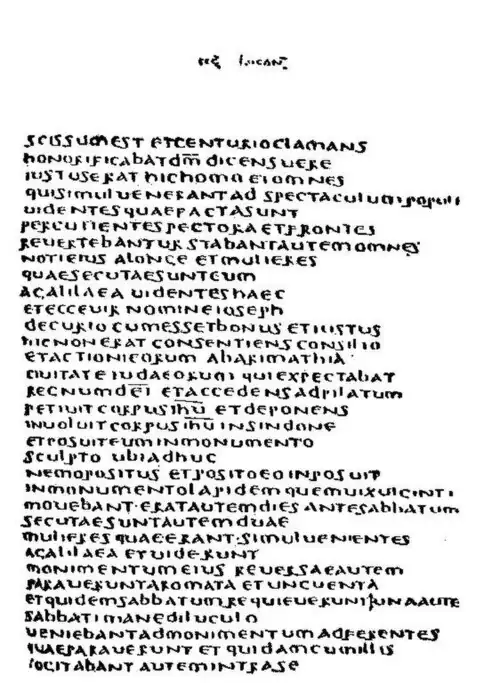 sec lucan̄
scissum est et centurio clamans
honorificabat dm̄ dicens uere
iustus erat hic homo et omnes
qui simul uenerant ad spectaculum populi
uidentes quae facta sunt
percutientes pectora et frontes
reuertebantur stabant autem omnes
noti eius a longe et mulieres
quae secutae sunt eum
a galilaea uidentes haec
et ecce uir nomine ioseph
decurio cum esset bonus et iustus
hic non erat consentiens consilio
et actioni eorum ab arimathia
ciuitate iudaeorum qui expectabat
regnum dēi et accedens ad pilatum
petiuit corpus ihū et deponens
inuoluit corpus ihū in sindone
et posuit eum in monumento
sculpto ubi adhuc
nemo positus et posito eo inposuit
in monumento lapidem quem uix uiginti
mouebant erat autem dies ante sabbatum
secutae sunt autem duae
mulieres quae erant simul uenientes
a galilaea et uiderunt
monimentum eius reuersae autem
parauerunt aromata et uncuenta
et quidem sabbatum requieuerunt una aute
sabbati mane diluculo
ueniebant ad monimentum adferentes
quae parauerunt et quidam cum illis
cogitabant autem intra se